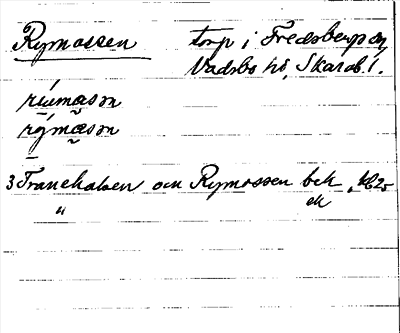 Rymossen torp i Fredsbergs sn,
Vadsbo hd, Skarab. l.
riumasn
rýmasn
3 Tranehalsen och Rymossen bck
" ek